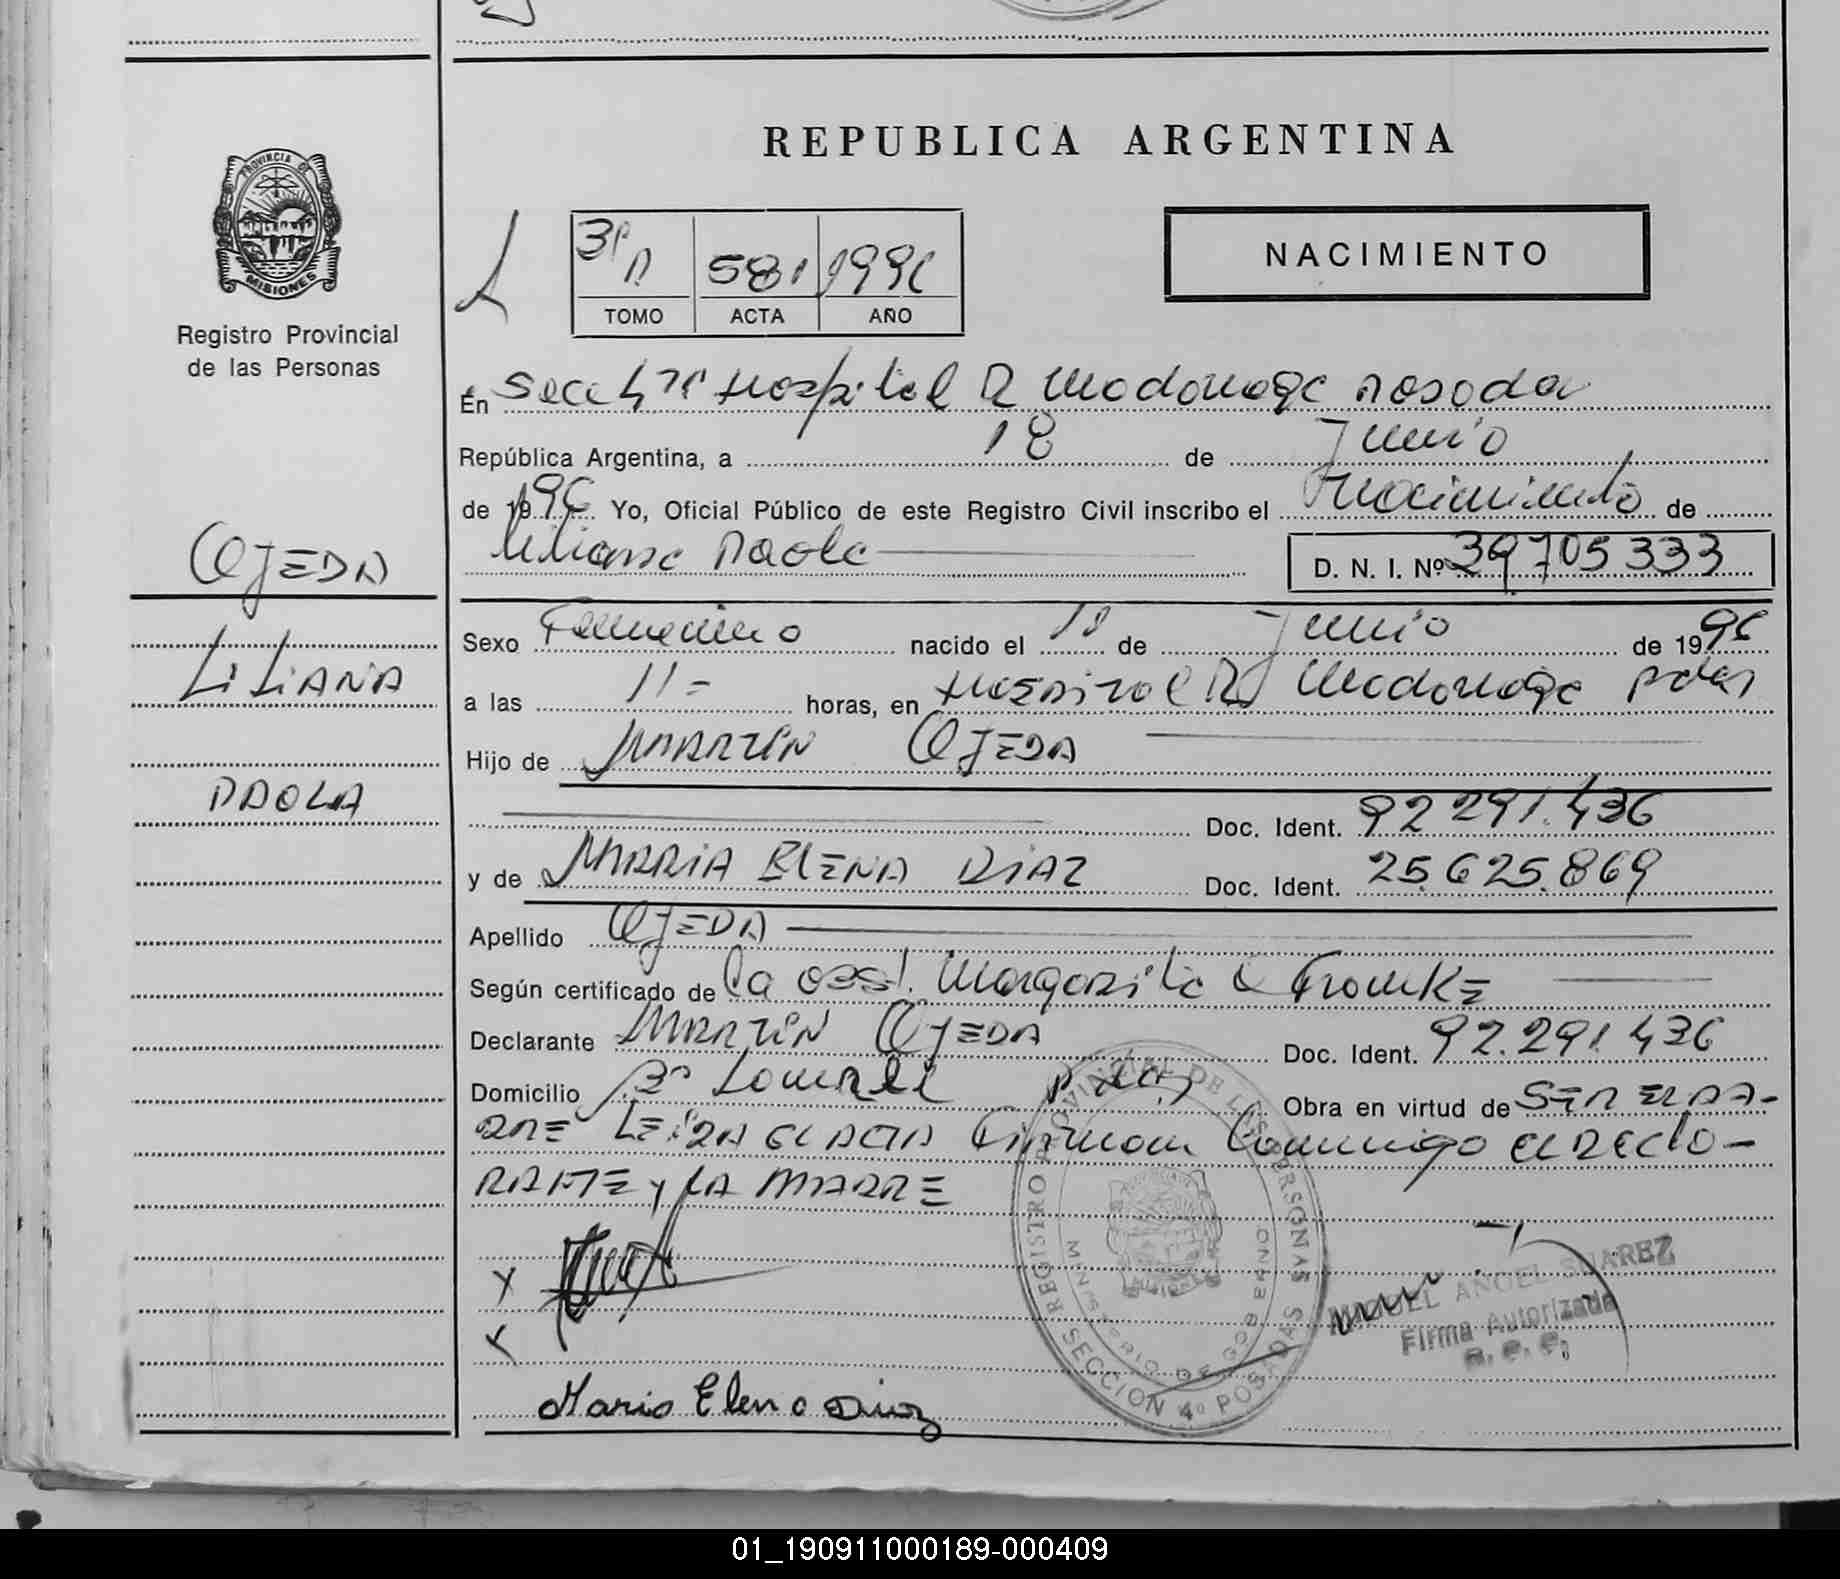 REPUBLICA ARGENTINA
PROVINCIA DE
MISIONES
Registro Provincial
de las Personas
581 1996
TOMO ACTA AÑO
NACIMIENTO
En Secc 4ta Hospital R Madariaga Posadas
República Argentina, a 18 de Junio
de 1996 Yo, Oficial Público de este Registro Civil inscribo el Nacimiento de
Liliana Paola
D. N. I. Nº 39705333
OJEDA
LiLiANA
PAOLA
Sexo Femenino nacido el de Junio de 1996
a las 11- horas, en Hospital R Madariaga Pdas
Hijo de MARTIN OJEDA
Doc. Ident. 92 291.436
y de MARIA ELENA DIAZ Doc. Ident. 25.625.869
Apellido OJEDA
Según certificado de la obst. Margarita Franke
Declarante MARTIN OJEDA Doc. Ident. 92.291.436
Domicilio Bº Pdas Obra en virtud de SER EL PA-
DRE LEIDA EL ACTA Firman Conmigo el DECLA-
RANTE y LA MADRE
X
X
Maria Elena Diaz
REGISTRO PROVINCIAL DE LAS PERSONAS
SECCION 4º POSADAS
MINISTERIO DE GOBIERNO
MIGUEL ANGEL SUAREZ
Firma Autorizada
01_190911000189-000409